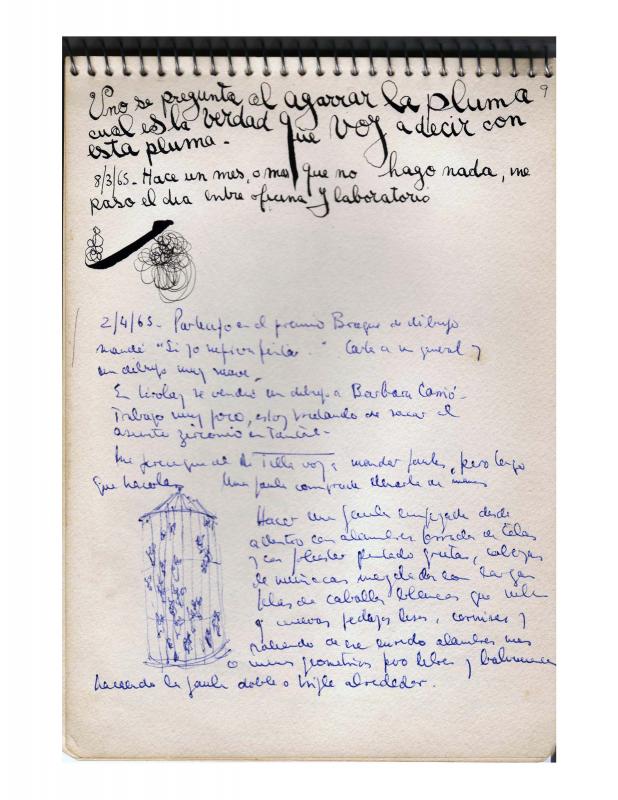 9
Uno se pregunta al agarrar la pluma
cual es la verdad que voy a decir con
esta pluma -
8/3/65 - Hace un mes, o mas que no hago nada, me
paso el dia entre oficina y laboratorio
2/4/65 - Participo en el premio Braque de dibujo
mandé "Si yo            ." Carta a un general y
un dibujo muy suave,
En            se vendió un dibujo a Barbara
Trabajo muy poco, estoy tratando de sacar el
asunto zirconio en
Me             Di Tella voy a mandar jaulas, pero tengo
que hacerlas       Una jaula comprada llenarla de manos
Hacer una jaula            desde
adentro con alambres forrados de telas
y con plaster pintado grietas, cabezas
de muñecas mezcladas con largas
       de caballos blancas que
y nuevos pedazos lisos, cornisas y
saliendo de ese enredo alambres mas
o menos geometricos pero libres y
haciendo la jaula doble o triple alrededor.